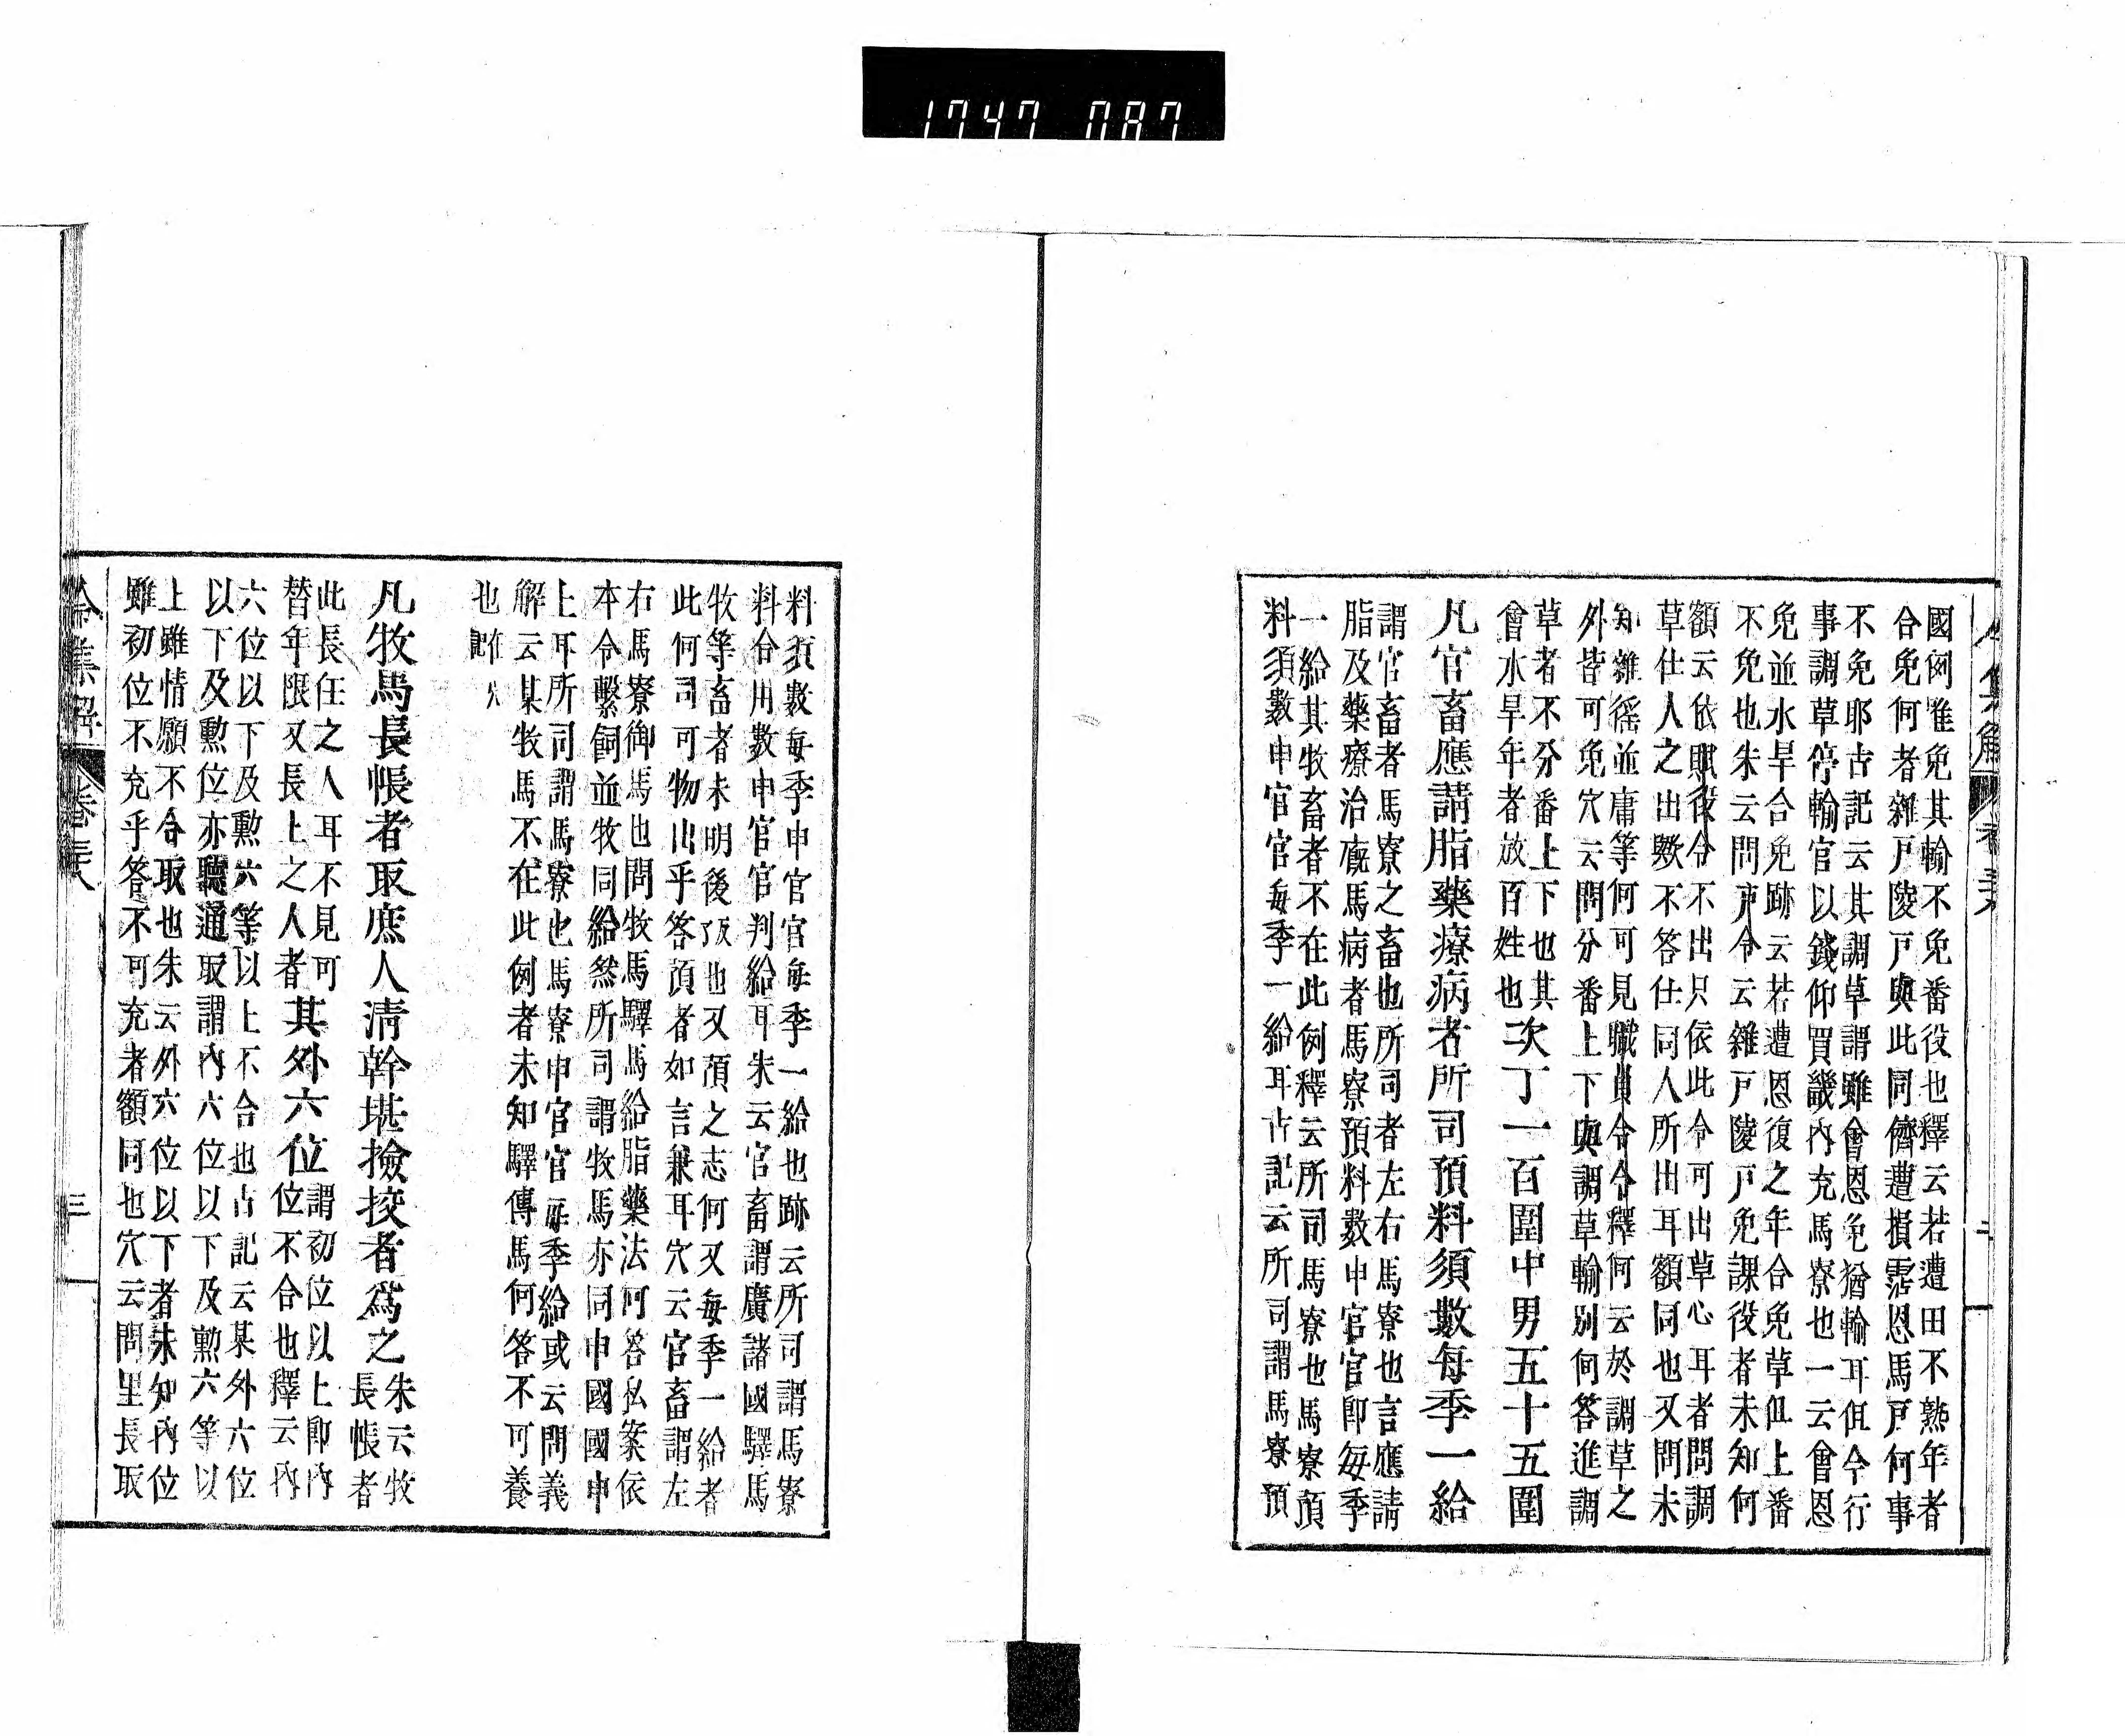 1747 087
國例唯免其輸不免番役也釋云若遭田不熟年者
合免何者雜戸陵戸與此同儕遭損霑恩馬戸何事
不免耶古記云其調草謂雖會恩免猶輸耳但今行
事調草停輸官以錢仰買畿內充馬寮也一云會恩
免並水旱合免跡云若遭恩復之年合免草但上番
不免也朱云問戸令云雜戸陵戸免課役者未知何
額云依賦役令不出只依此令可出草心耳者問調
草仕人之出歟不答仕同人所出耳額同也又問未
知雜徭並庸等何可見職員令令釋何云於調草之
外皆可免穴云問分番上下與調草輸別何答進調
草者不分番上下也其
會水旱年者放百姓也次丁一百圍中男五十五圍
凡官畜應請脂藥療病者所司預料須數每季一給
謂官畜者馬寮之畜也所司者左右馬寮也言應請
脂及藥療治廐馬病者馬寮預料數申官官即每季
一給其牧畜者不在此例釋云所司馬寮也馬寮預
料須數申官官每季一給耳古記云所司謂馬寮預
料須數每季申官官每季一給也跡云所司謂馬寮
料合用數申官官判給耳朱云官畜謂廣諸國驛馬
牧等畜者未明後也又預之志何又每季一給者
此何司可物出乎答預者如言兼耳穴云官畜謂左
右馬寮御馬也問牧馬驛馬給脂藥法何答私案依
本令繫飼並牧同給然所司謂牧馬亦同申國國申
上耳所司謂馬寮也馬寮申官官每季給或云問義
解云某牧馬不在此例者未知驛傳馬何答不可養
也
凡牧馬長帳者取庶人清幹堪撿挍者爲之朱云牧
長帳者
此長任之人耳不見可
替年限又長上之人者其外六位謂初位以上即內
位不合也釋云內
六位以下及勲六等以上不合也古記云某外六位
以下及勲位亦聽通取謂內六位以下及勲六等以
上雖情願不合取也朱云外六位以下者朱知內位
雖初位不充乎答不可充者額同也穴云問里長取
令集解 卷三十八 三